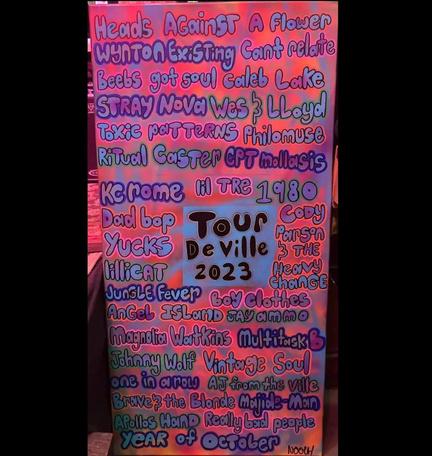 Heads Against A Flower
Wynton Existing Cant relate
Beebs got soul Caleb Lake
STRAY Nova Wes & LLoyd
Toxic patterns Philomuse
Ritual Caster CPT Mollasis
Kerome lil TRE 1980
Dad bop
Yucks
lillicat
Tour
De Ville
2023
Cody
Parson
& THE
Heavy
CHANGE
Jungle Fever boy clothes
Angel Island Jayammo
Magnolia Watkins Multitask B
Johnny Wolf Vintage Soul
one in a row AJ from the Ville
Brave & the Blonde Majide-Man
Apollos Hand Really bad people
year of October
NOOLH